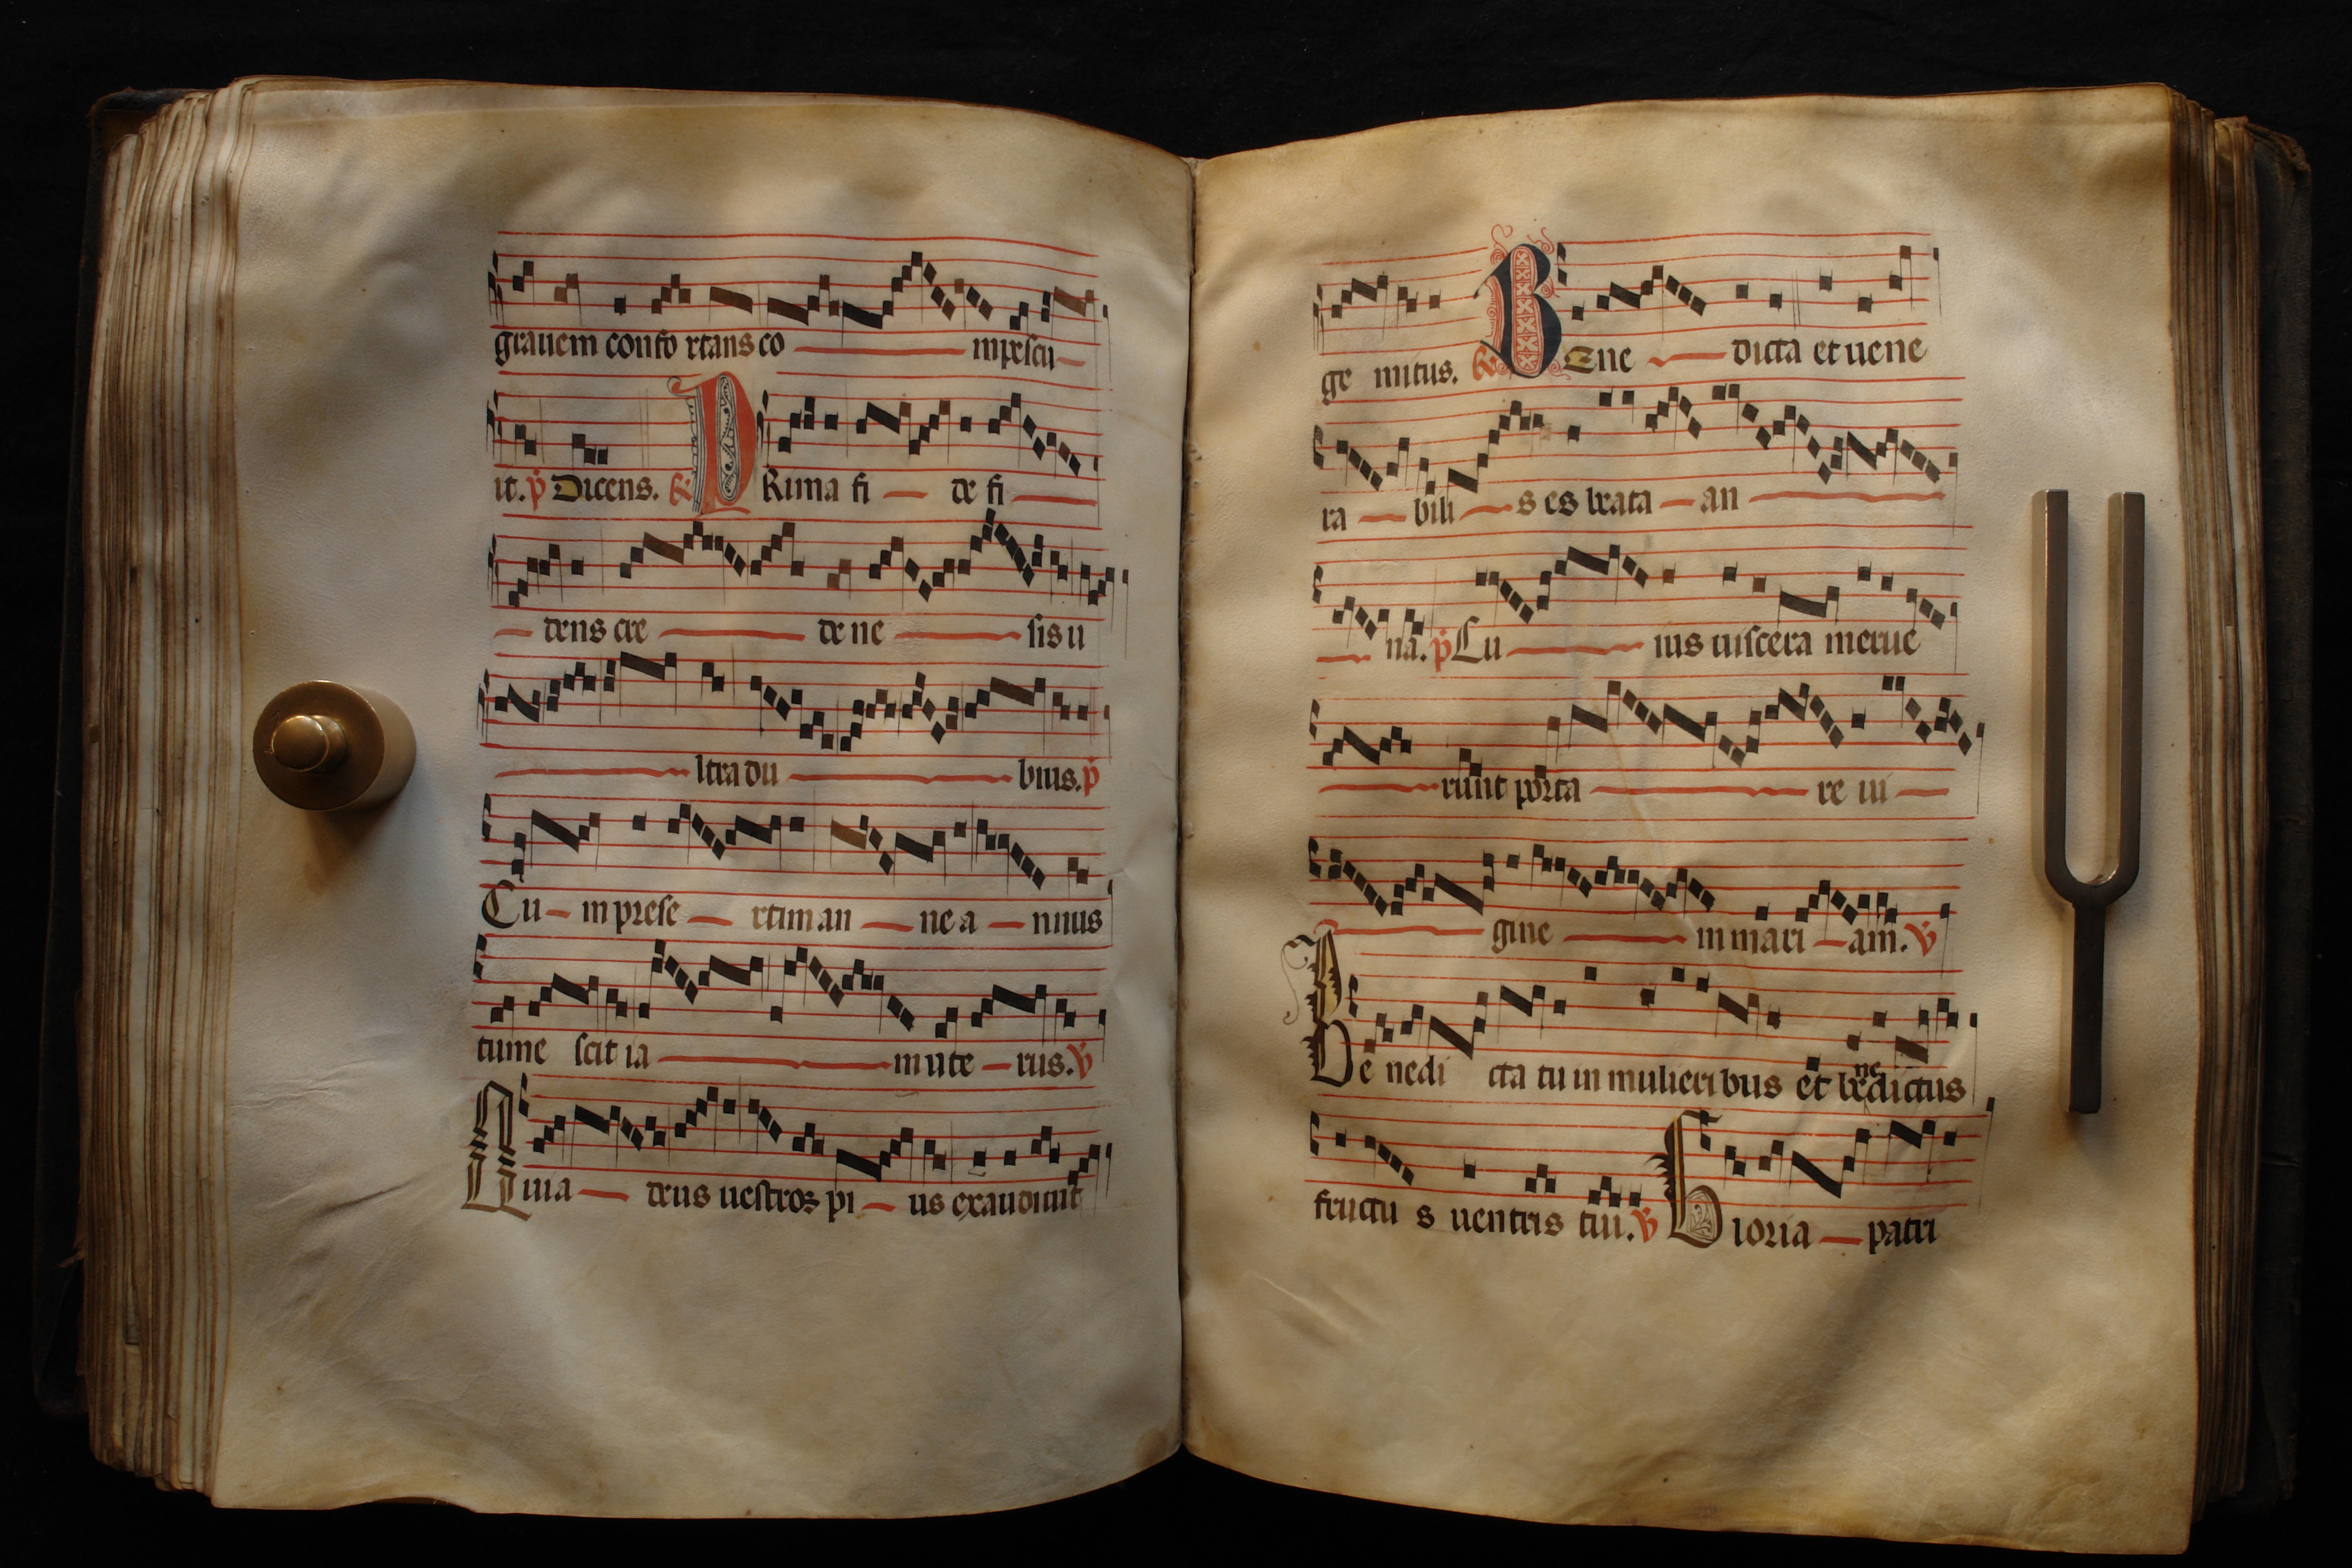 grauem confo rtans co mpescu
it. p Dicens. R PRima fi de fi
dens cre de ne sis u
ltra du bius. p
Cu m prese rtim an ne a nnus
tume scit ia m ute rus. V
Quia deus uestros pi us exaudiuit
ge mitus. R BEne dicta et uene
ra bili s es beata an
na. p Cu ius uiscera merue
runt porta re ui
gine m mari am. V
Be nedi cta tu in mulieri bus et benedictus
fructu s uentris tui. V Gloria patri